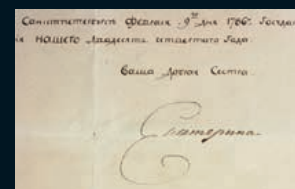 Санктпетербургъ февраля 9го дня 1786. Государ
нашего двадесять четвертаго Года.
Ваша добрая Сестра.
Екатерина